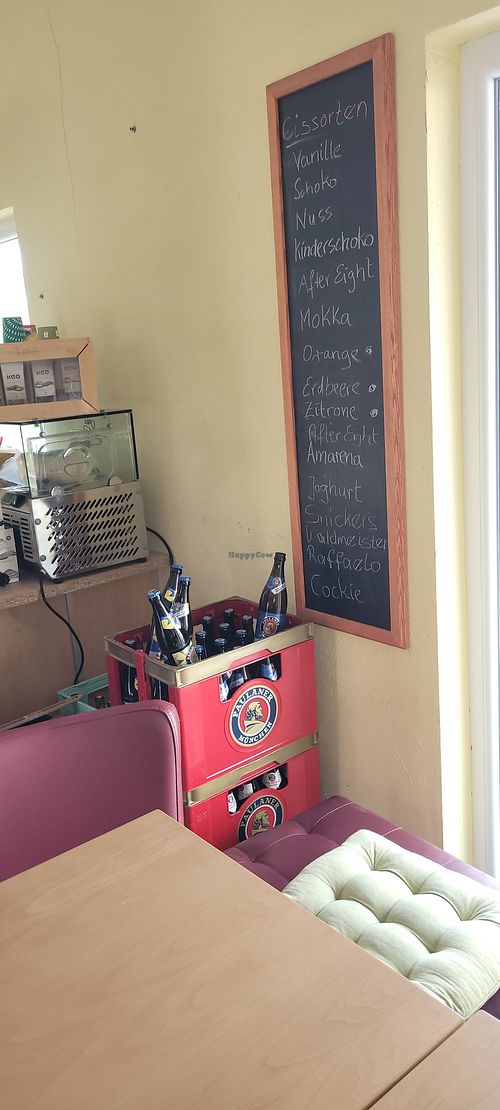 Eissorten
Vanille
Schoko
Nuss
Kinderschoko
After Eight
Mokka
Orange
Erdbeere
Zitrone
After Eight
Amarena
Joghurt
Snickers
Waldmeister
Raffaelo
Cookie
HappyCow
PAULANER
MÜNCHEN
PAULANER